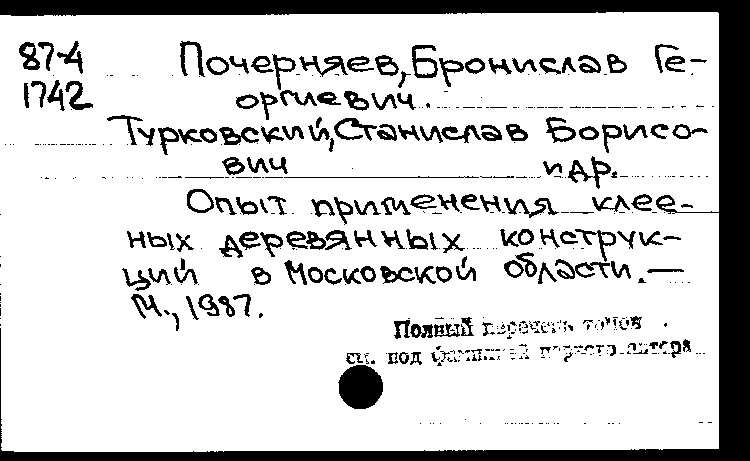 87-4 Почерняев, Бронислав Ге-
1742 оргиевич.
Турковский, Станислав Борисо-
вич и др.
Опыт применения клее-
ных деревянных конструк-
ций в Московской области. —
М., 1987.
Полный перечень томов
см. под фамилией первого автора